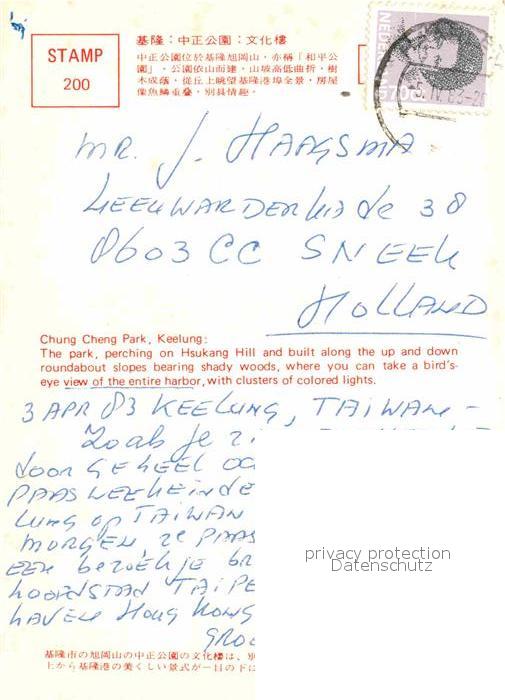 基隆：中正公園：文化樓
中正公園位於基隆旭岡山，亦稱「和平公
園」。公園依山而建，山坡高低曲折，樹
木成蔭，從丘上眺望基隆港埠全景，房屋
像魚鱗重疊，別具情趣。
STAMP
200
NEDERLAND
MR. J. HAAGSMA
LEEUWARDERKADE 38
8603 CC SNEEK
HOLLAND
Chung Cheng Park, Keelung:
The park, perching on Hsukang Hill and built along the up and down
roundabout slopes bearing shady woods, where you can take a bird's-
eye view of the entire harbor, with clusters of colored lights.
3 APR 83 KEELUNG, TAIWAN -
Zoals je zi
door GEHEEL
PAASWEEKEINDE
LUNG op TAIWAN
MORGEN 2e PAAS
EEN bezoekje br
HOOFDSTAD TAIPE
HAVEN HONG KONG
GROE
privacy protection
Datenschutz
基隆市の旭岡山の中正公園の文化樓は、別
上から基隆港の美くしい景式が一目の下に